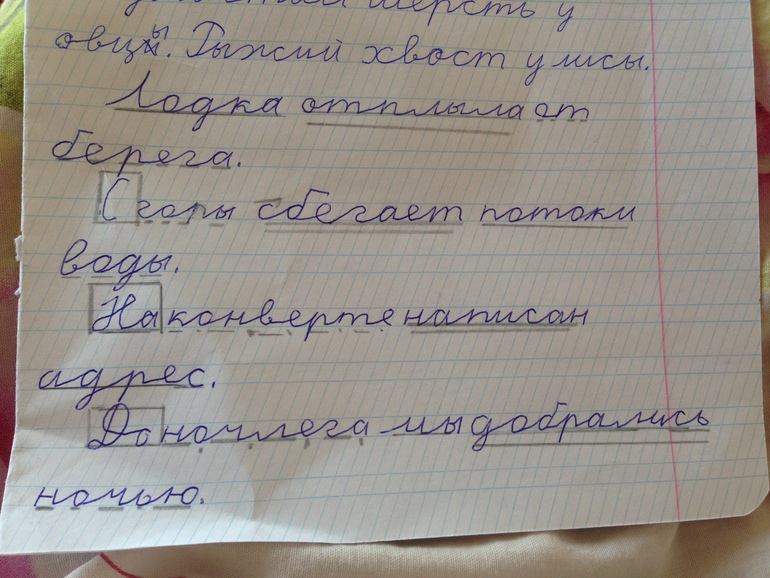 шерсть у
овцы. Рыжий хвост у лисы.
Лодка отплыла от
берега.
С горы сбегает потоки
воды.
На конверте написан
адрес.
До ночлега мы добрались
ночью.